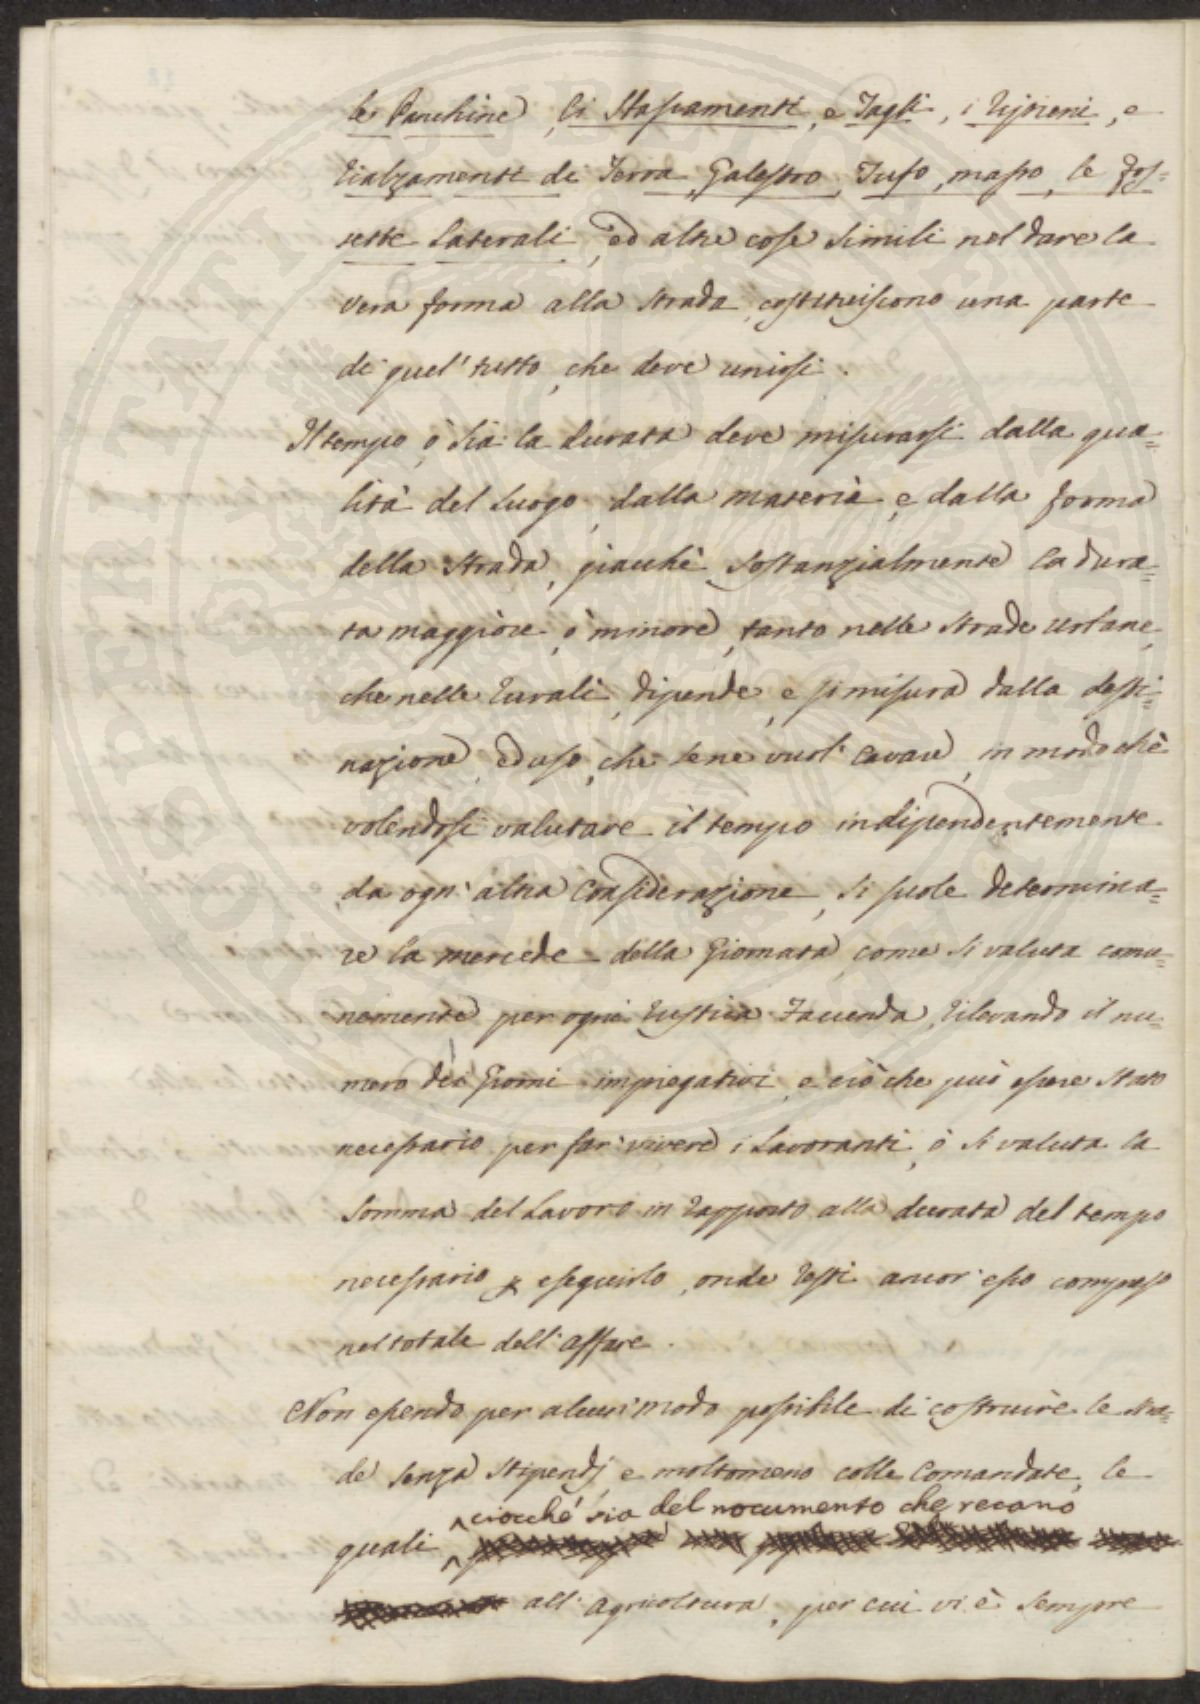 le Panchine, li Stassamenti, e Tagli, i Ripieni, e
rialzamenti di Terra, Galestro, Tufo, masso, le Fos=
sette Laterali, ed altre cose Simili nel dare la
vera forma alla Strada, costituiscono una parte
di quel' tutto, che deve unirsi.
Il tempo, ò sia la durata deve misurarsi dalla qua=
lità del luogo, dalla materia, e dalla forma
della Strada, giacchè Sostanzialmente la dura=
ta maggiore, ò minore, tanto nelle Strade Urbane,
che nelle rurali, dipende, e si misura dalla desti=
nazione, ed uso, che se ne vuol' cavare, in modo chè
volendosi valutare il tempo indipendentemente
da ogn' altra Considerazione, si suole determina=
re la mercede della Giornata, come si valuta comu=
nemente per ogni rustica Facienda, rilevando il nu=
mero dei Giorni impiegativi, e ciò che può essere stato
necessario per far' vivere i Lavoranti, ò si valuta la
Somma del Lavoro in rapporto alla durata del tempo
necessario p eseguirlo, onde resti ancor' esso compreso
nel totale dell' affare.
Non essendo per alcun' modo possibile di costruire le stra=
de senza Stipendj, e molto meno colle Comandate, le
ciocché sia del nocumento che recano
quali
all' Agricoltura, per cui vi è sempre